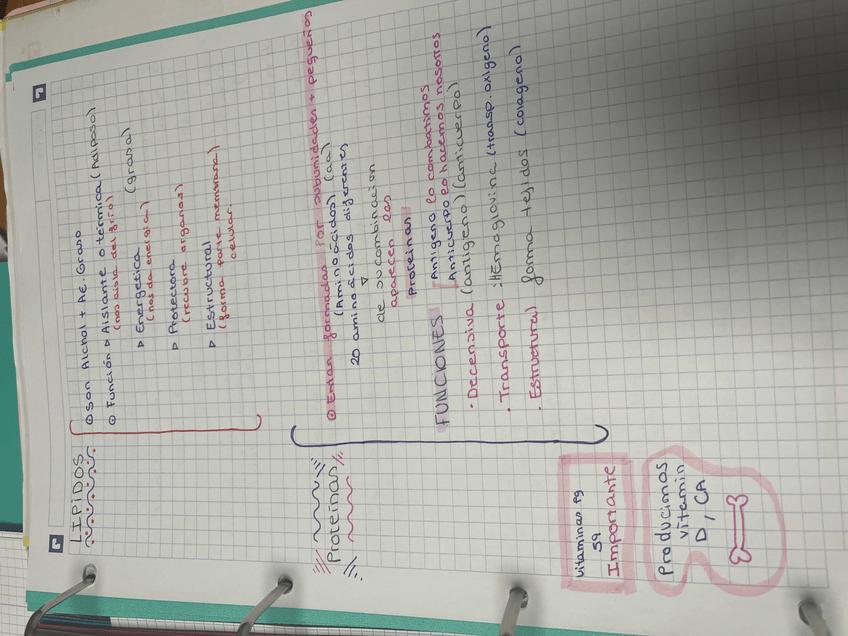 LIPIDOS
⊙ Son Alchol + Ac. Graso
⊙ Función ▹ Aislante o térmica (Adiposo)
(nos aisla del frio)
▹ Energética (grasa)
(nos da energia)
▹ Protectora
(recubre organos)
▹ Estructural
(forma parte membrana
celular.
Proteinas
⊙ Entan formadas por subunidades + pequeños
(Amino ácidos) (aa)
20 amino ácidos diferentes
de su combinacion
aparecen las
Proteinas
FUNCIONES
Antigeno lo combatimos
Anticuerpo lo hacemos nosotros
· Decensiva (antigeno) (anticuerpo)
· Transporte :HEmoglovina (transp. oxigeno)
· Estructural forma tejidos (colageno)
vitaminas Pg
59
Importante
Producimos
vitamin
D, CA